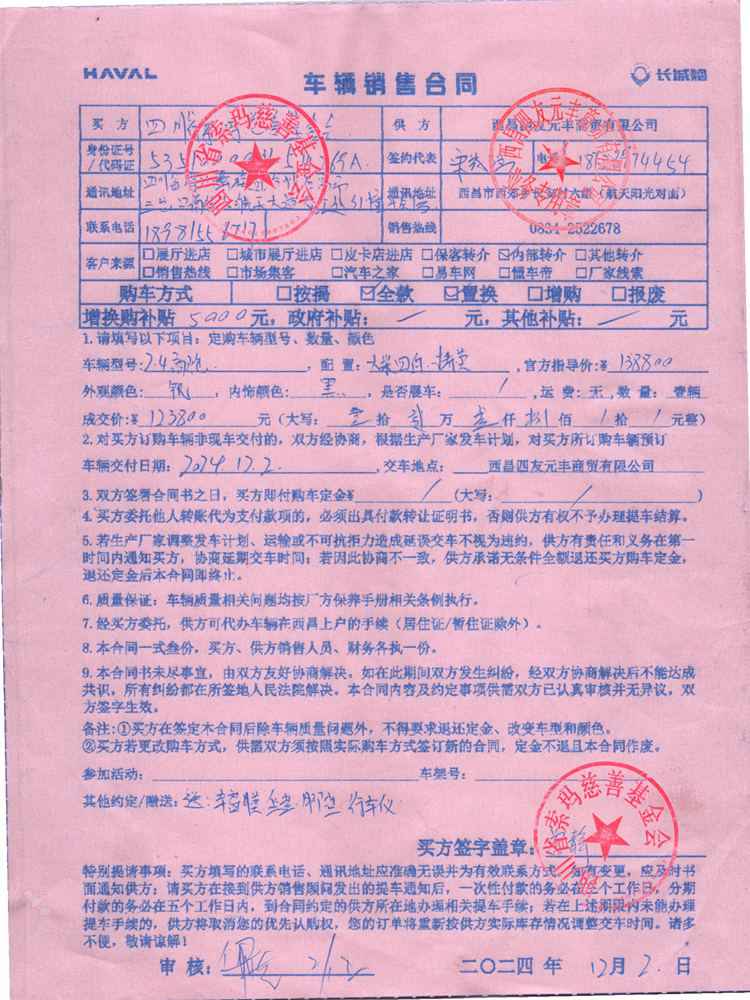 HAVAL
长城
车辆销售合同
买 方 四川 供 方 西昌四友元丰商贸有限公司
身份证号/代码证 签约代表 电话
通讯地址 通讯地址 西昌市西郊 大道(航天阳光对面)
联系电话 销售热线 0834-2522678
客户来源 □展厅进店 □城市展厅进店 □皮卡店进店 □保客转介 ☑内部转介 □其他转介
□销售热线 □市场集客 □汽车之家 □易车网 □懂车帝 □厂家线索
购车方式 □按揭 ☑全款 ☑置换 □增购 □报废
增换购补贴 5000元,政府补贴: / 元,其他补贴: / 元
1.请填写以下项目:定购车辆型号、数量、颜色
车辆型号: 2.4 ,配 置: ,官方指导价:¥ 138800
外观颜色: 银 ,内饰颜色: 黑 ,是否展车: / ,运 费:无,数 量:壹辆
成交价:¥ 123800 元(大写: 壹 拾 贰 万 仟 捌 佰 / 拾 / 元整)
2.对买方订购车辆非现车交付的,双方经协商,根据生产厂家发车计划,对买方所订购车辆预订
车辆交付日期: 2024.12.2. ,交车地点: 西昌四友元丰商贸有限公司
3.双方签署合同书之日,买方即付购车定金¥ / (大写: / )
4.买方委托他人转账代为支付款项的,必须出具付款转让证明书,否则供方有权不予办理提车结算。
5.若生产厂家调整发车计划、运输或不可抗拒力造成延误交车不视为违约,供方有责任和义务在第一
时间内通知买方,协商延期交车时间;若因此协商不一致,供方承诺无条件全额退还买方购车定金,
退还定金后本合同即终止。
6.质量保证:车辆质量相关问题均按厂方保养手册相关条例执行。
7.经买方委托,供方可代办车辆在西昌上户的手续(居住证/暂住证除外)。
8.本合同一式叁份,买方、供方销售人员、财务各执一份。
9.本合同书未尽事宜,由双方友好协商解决。如在此期间双方发生纠纷,经双方协商解决后不能达成
共识,所有纠纷都在所签地人民法院解决。本合同内容及约定事项供需双方已认真审核并无异议,双
方签字生效。
备注:①买方在签定本合同后除车辆质量问题外,不得要求退还定金、改变车型和颜色。
②买方若更改购车方式,供需双方须按照实际购车方式签订新的合同,定金不退且本合同作废。
参加活动: 车架号:
其他约定/赠送: 送: 行车仪
买方签字盖章:
特别提请事项:买方填写的联系电话、通讯地址应准确无误并为有效联系方式,如有变更,应及时书
面通知供方;请买方在接到供方销售顾问发出的提车通知后,一次性付款的务必在 个工作日,分期
付款的务必在五个工作日内,到合同约定的供方所在地办理相关提车手续;若在上述期限内未能办理
提车手续的,供方将取消您的优先认购权,您的订单将重新按供方实际库存情况调整交车时间。诸多
不便,敬请谅解!
审 核: 2/12 二〇二四 年 12月 2 日
四川省索玛慈善基金会
西昌四友元丰商贸有限公司
四川省索玛慈善基金会